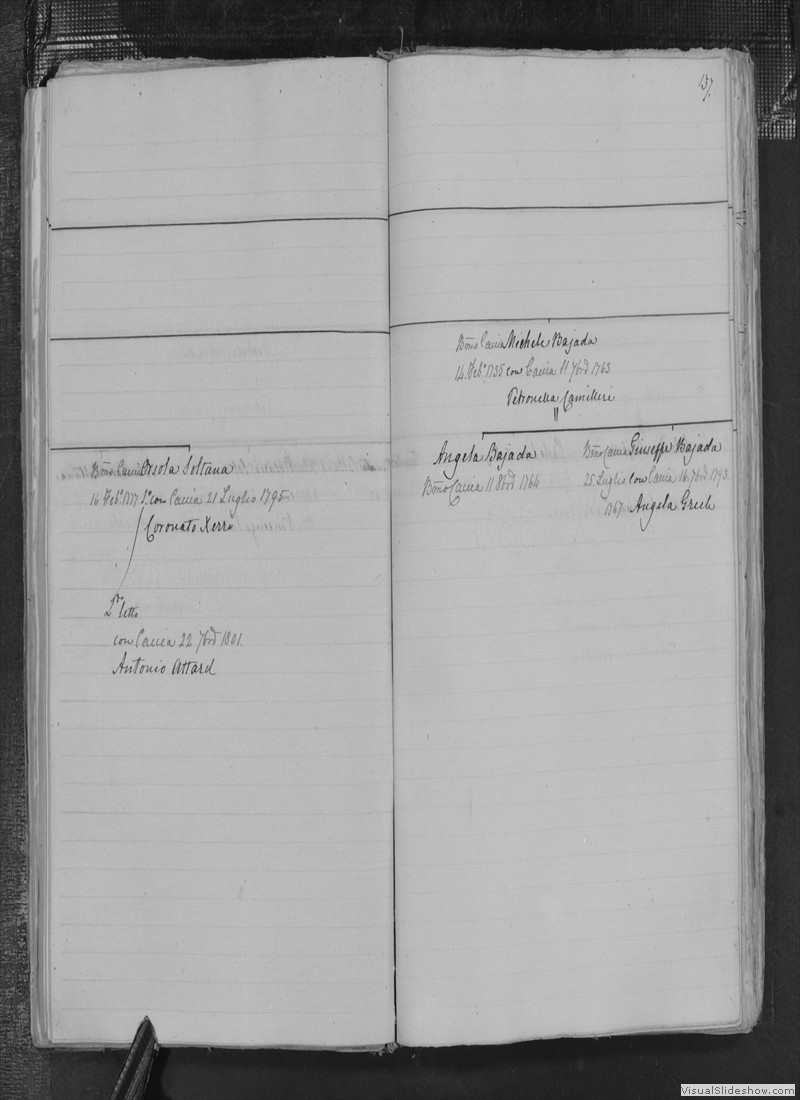 137.
Bñio Cacia Orsola Soltana
16 Feb.º 1777 1.º con Cacia 21 Luglio 1795
Coronato Xerri
2.do letto
con Cacia 22 7brẽ 1801.
Antonio Attard
Bñio Cacia Michele Bajada
14 Feb.º 1735 con Cacia 11 7brẽ 1763
Petronella Camilleri
"
Angela Bajada
Bñio Cacia 11 8brẽ 1764
Bñio Cacia Giuseppe Bajada
25 Luglio con Cacia 16 7brẽ 1793
1767 Angela Grech
VisualSlideshow.com